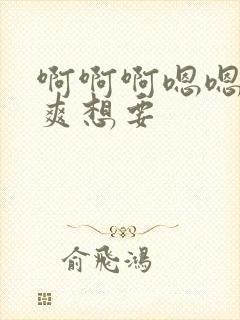 啊啊啊嗯嗯
爽想要
俞飛鴻